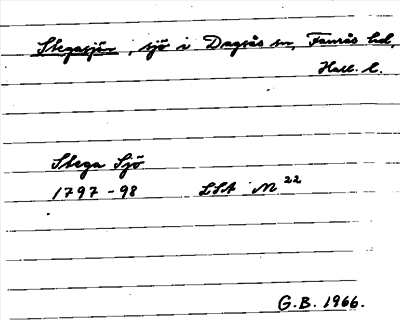 Stegasjön, sjö i Dagsås sn, Faurås hd,
Hall. l.
Stega Sjö
1797-98 LSA N 22
G.B. 1966.